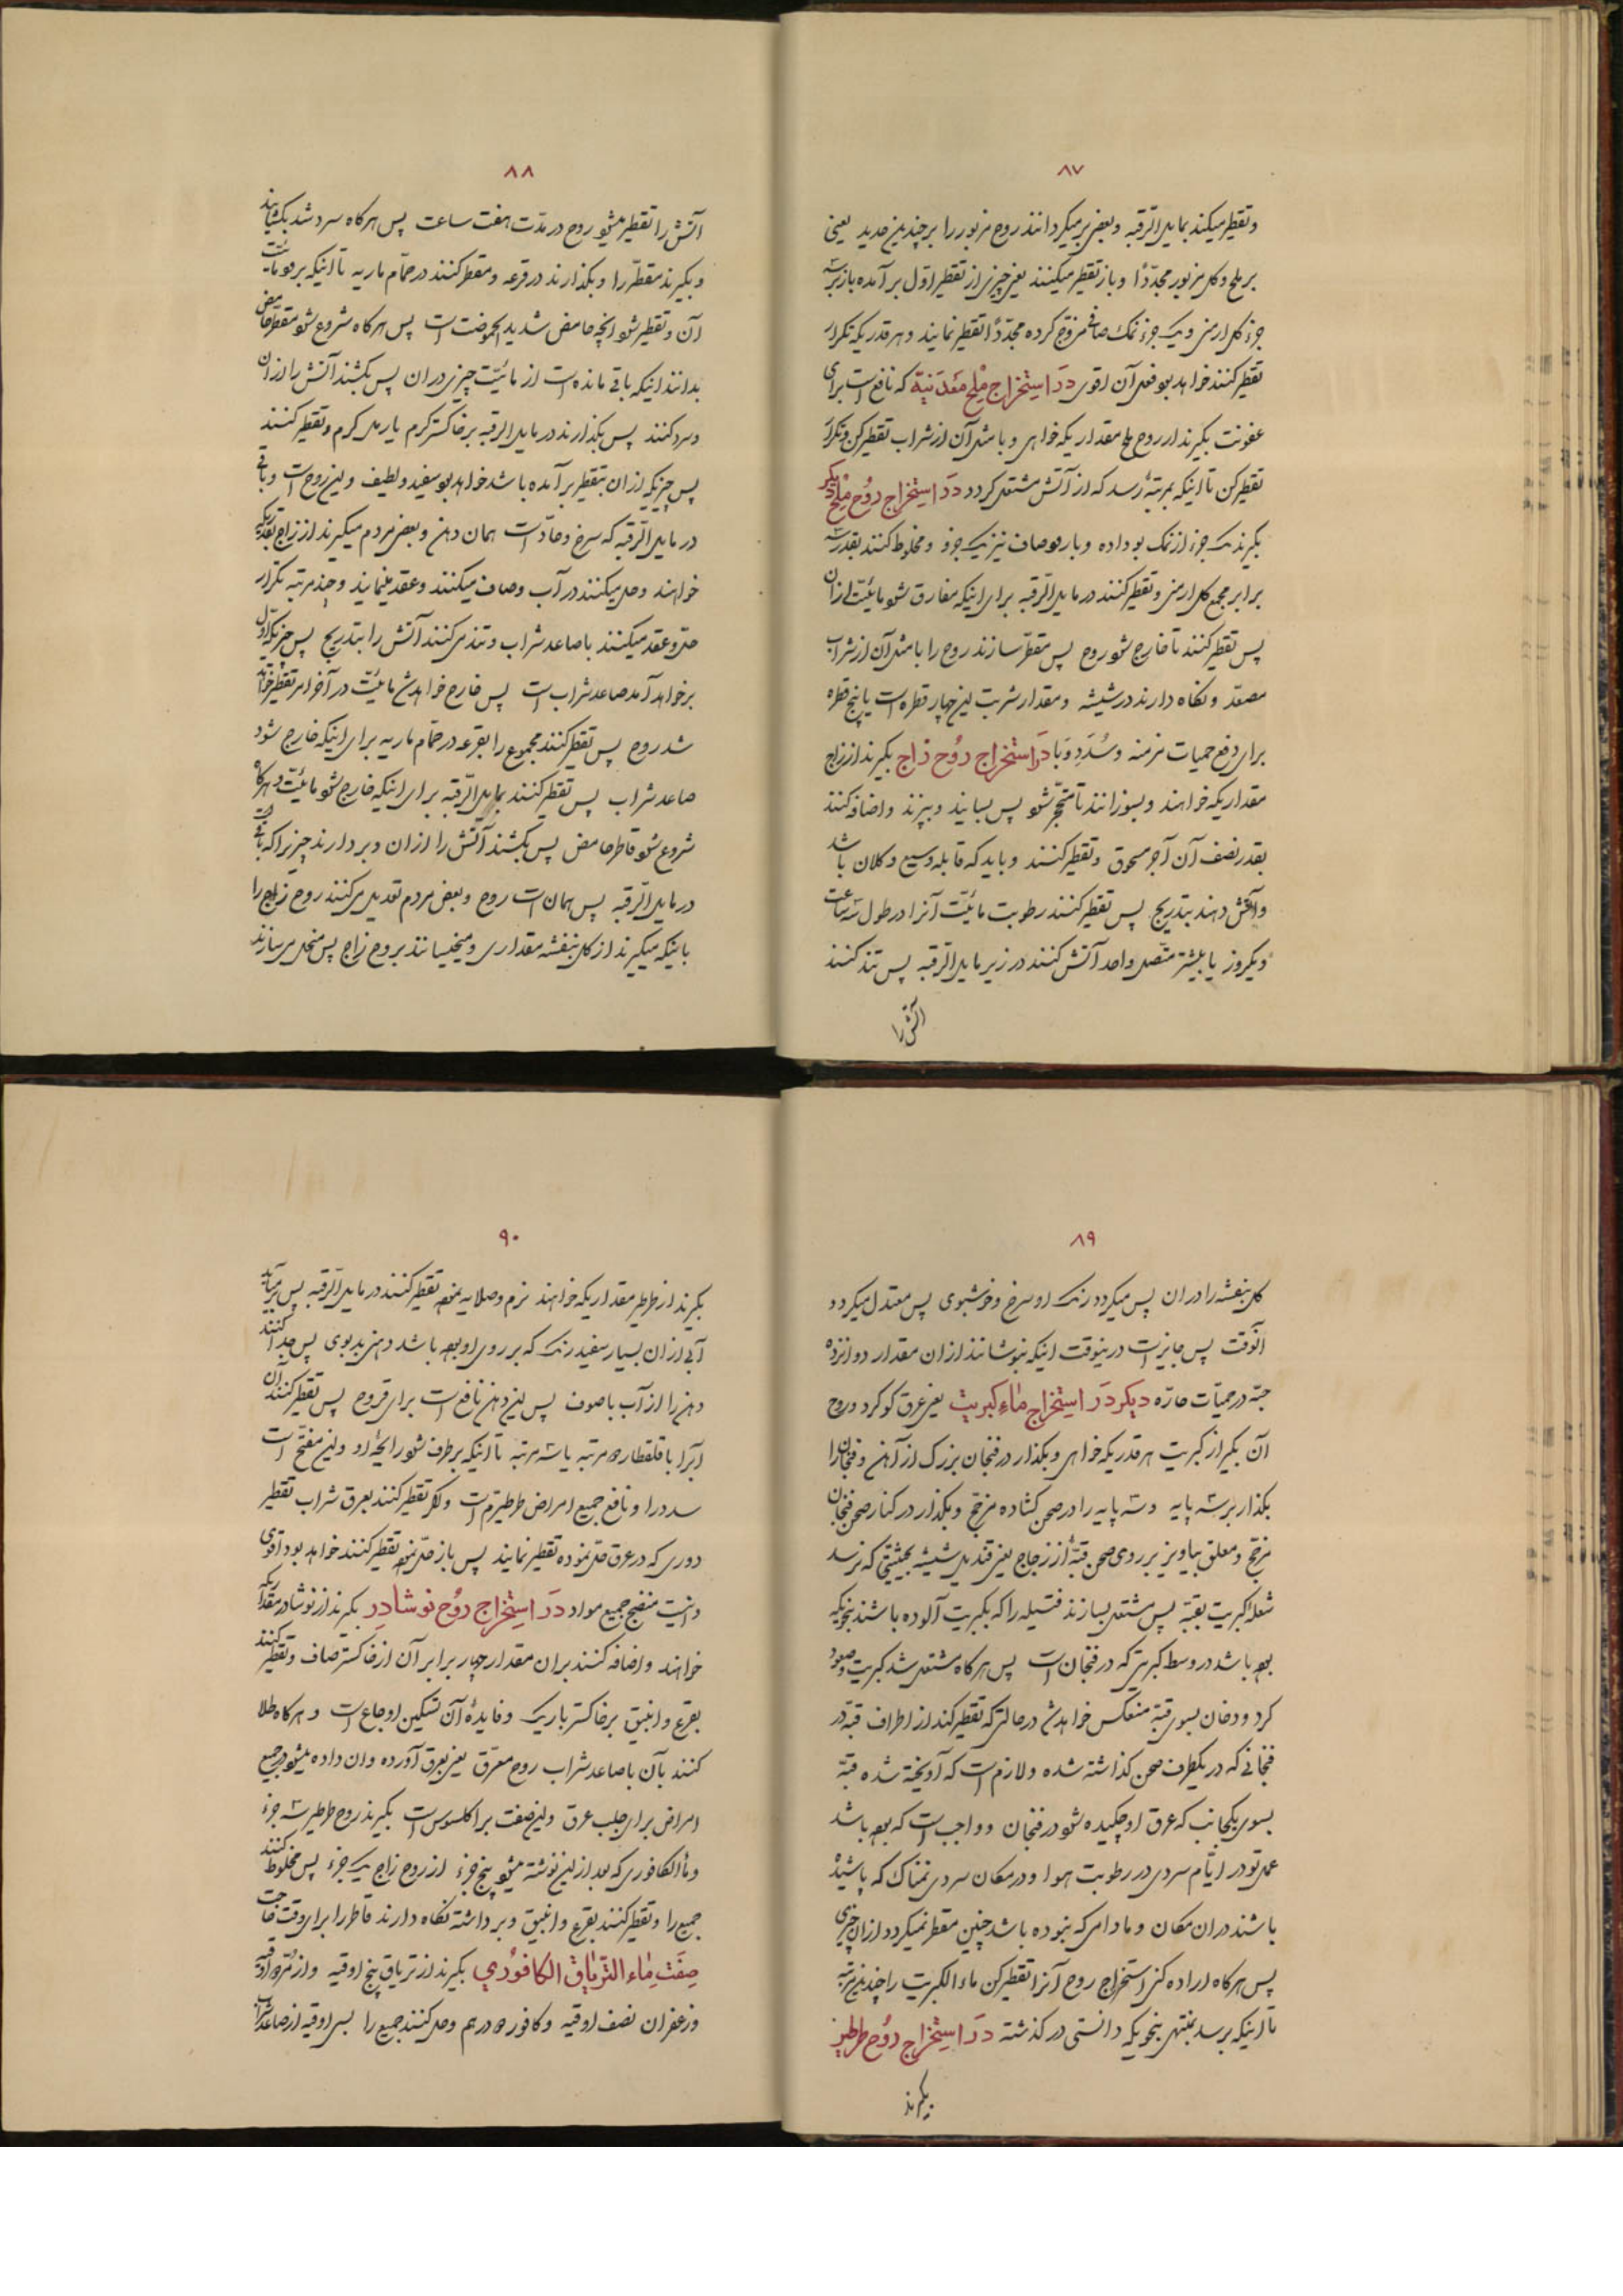 ۸۷
وتقطیر میکند بمایل الرقبه وبعض برمیکردانند روح مزبور را بر چندین جدید یعنی
بر ملح وکل مزبور مجدّدًا وباز تقطیر میکنند یعنی چیزی از تقطیر اوّل برآمده باز بر سه
جزء کل ارمنی ویک جزء نمک صاف ممزوج کرده مجدّدًا تقطیر نمایند وهر قدر یکه تکرار
تقطیر کنند خواهد بود فعل آن اقوی در استخراج ملح معدنیة که نافع است برای
عفونت بکیرند از روح ملح مقدار یکه خواهی وبا مثل آن از شراب تقطیر کن وتکرار
تقطیر کن تا اینکه بمرتبهٔ رسد که از آتش مشتعل کردد در استخراج روح ملح دیکر
بکیرند یک جزء از نمک بو داده وبارود صاف نیز یک جزو ومخلوط کنند بقدر سه
برابر مجموع کل ارمنی وتقطیر کنند در مایل الرّقبه برای اینکه مفارق شود مائیّت از ان
پس تقطیر کنند تا خارج شود روح پس مقطّر سازند روح را با مثل آن از شراب
مصعّد ونکاه دارند در شیشه ومقدار شربت این چهار قطره است یا پنج قطره
برای دفع حمیات مزمنه وسُدَد ووَبا در استخراج روح زاج بکیرند از زاج
مقدار یکه خواهند وبسوزانند تا متحجّر شود پس بسایند وبپزند واضافه کنند
بقدر نصف آن آجر مسحوق وتقطیر کنند وباید که قابله وسیع وکلان باشد
وآتش دهند بتدریج پس تقطیر کنند رطوبت مائیّت آنرا در طول سه ساعت
ویکروز یا بیشتر متّصل واحد آتش کنند در زیر مایل الرّقبه پس تند کنند
آتش را
۸۸
آتش را تقطیر میشود روح در مدّت هفت ساعت پس هرکاه سرد شد بکشایند
وبکیرند مقطّر را وبکذارند در قرعه ومقطر کنند در حمّام ماریه تا اینکه برود مائیّت
آن وتقطیر شود آنچه حامض شدید الحموضت است پس هرکاه شروع شود مقطر حامض
بدانند اینکه باقی مانده است از مائیّت چیزی در ان پس بکشند آتش را از ان
وسرد کنند پس بکذارند در مایل الرقبه بر خاکستر کرم یا رمل کرم وتقطیر کنند
پس چیزیکه از ان بتقطیر برآمده باشد خواهد بود سفید ولطیف واین روح است وباقی
در مایل الرّقبه که سرخ وحادّ است همان دهن وبعض مردم میکیرند از زاج بقدریکه
خواهند وحل میکنند در آب وصاف میکنند وعقد مینمایند وچند مرتبه تکرار
حلّ وعقد میکنند با صاعد شراب وتند می کنند آتش را بتدریج پس چیزیکه اوّل
برخواهد آمد صاعد شراب است پس خارج خواهد شد مائیّت در آخر امر تقطیر خواهد
شد روح پس تقطیر کنند مجموع را بقرعه در حمّام ماریه برای اینکه خارج شود
صاعد شراب پس تقطیر کنند بمایل الرّقبه برای اینکه خارج شود مائیّت وهرکاه
شروع شود قاطر حامض پس بکشند آتش را از ان وبردارند چیزیرا که باقیست
در مایل الرّقبه پس همان است روح وبعض مردم تعدیل می کنند روح زاج را
باینکه میکیرند از کل بنفشه مقداری ومیخیسانند بروح زاج پس منحل می سازند
۸۹
کل بنفشه را در ان پس میکردد رنک او سرخ وخوشبوی پس معتدل میکردد
آنوقت پس جایز است درینوقت اینکه بنوشانند از ان مقدار دوانزده
حبّه در حمیّات حارّه دیکر در استخراج ماء کبریت یعنی عرق کوکرد وروح
آن بکیر از کبریت هر قدر یکه خواهی وبکذار در فنجان بزرک از آهن وفنجان را
بکذار بر سه پایه وسه پایه را در صحن کشاده مزجّج وبکذار در کنار صحن فنجان
مزجّج ومعلق بیاویز بر روی صحن قبّهٔ از زجاج یعنی قندیل شیشه بحیثیتی که نرسد
شعلهٔ کبریت بقبّه پس مشتعل بسازند فتیله را که بکبریت آلوده باشند بنحویکه
بوده باشد در وسط کبریتی که در فنجان است پس هرکاه مشتعل شد کبریت وصعود
کرد ودخان بسوی قبّه منعکس خواهد شد در حالتی که تقطیر کند از اطراف قبّه در
فنجانی که در یکطرف صحن کذاشته شده ولازم است که آویخته شده قبّه
بسوی یکجانب که عرق او چکیده شود در فنجان وواجب است که بوده باشد
عمل تو در ایّام سردی در رطوبت هوا ودر مکان سردی نمناک که پاشیده
باشند در ان مکان ومادامی که نبوده باشد چنین مقطر نمیکردد از ان چیزی
پس هرکاه اراده کنی استخراج روح آنرا تقطیر کن ماء الکبریت را چندین مرتبه
تا اینکه برسد بمنتهی بنحویکه دانستی در کذشته در استخراج روح طرطیر
بکیرند
۹۰
بکیرند از طرطیر مقدار یکه خواهند نرم وصلایه نموده تقطیر کنند در مایل الرّقبه پس برمیآید
آبی از ان بسیار سفید رنک که بر روی او بوده باشد دهنی بدبوی پس جدا کنند
دهن را از آب با صوف پس این دهن نافع است برای قروح پس تقطیر کنند آن
آبرا با قلقطار دو مرتبه یا سه مرتبه تا اینکه برطرف شود رایحهٔ او واین مفتّح است
سدد را ونافع جمیع امراض طرطیریّه است واکر تقطیر کنند بعرق شراب تقطیر
دوری که در عرق حلّ نموده تقطیر نمایند پس باز حلّ نموده تقطیر کنند خواهد بود اقوی
وانیست منضج جمیع مواد در استخراج روح نوشادر بکیرند از نوشادر مقدار یکه
خواهند واضافه کنند بران مقدار چهار برابر آن از خاکستر صاف وتقطیر کنند
بقرع وانبیق بر خاکستر باریک وفایدهٔ آن تسکین اوجاع است وهرکاه طلا
کنند بآن با صاعد شراب روح معرّق یعنی عرق آورده وان داده میشود در جمیع
امراض برای جلب عرق واین صفت براکلسوس است بکیرند روح طرطیر سه جزء
وماء الکافوری که بعد از این نوشته میشود پنج جزء از روح زاج یک جزء پس مخلوط کنند
جمیع را وتقطیر کنند بقرع وانبیق وبرداشته نکاه دارند قاطر را برای وقت حاجت
صفت ماء التّریاق الکافوری بکیرند از تریاق پنج اوقیه واز مُرّ دو اوقیه
وزعفران نصف اوقیه وکافور دو درهم وحل کنند جمیع را بسی اوقیه از صاعد شراب